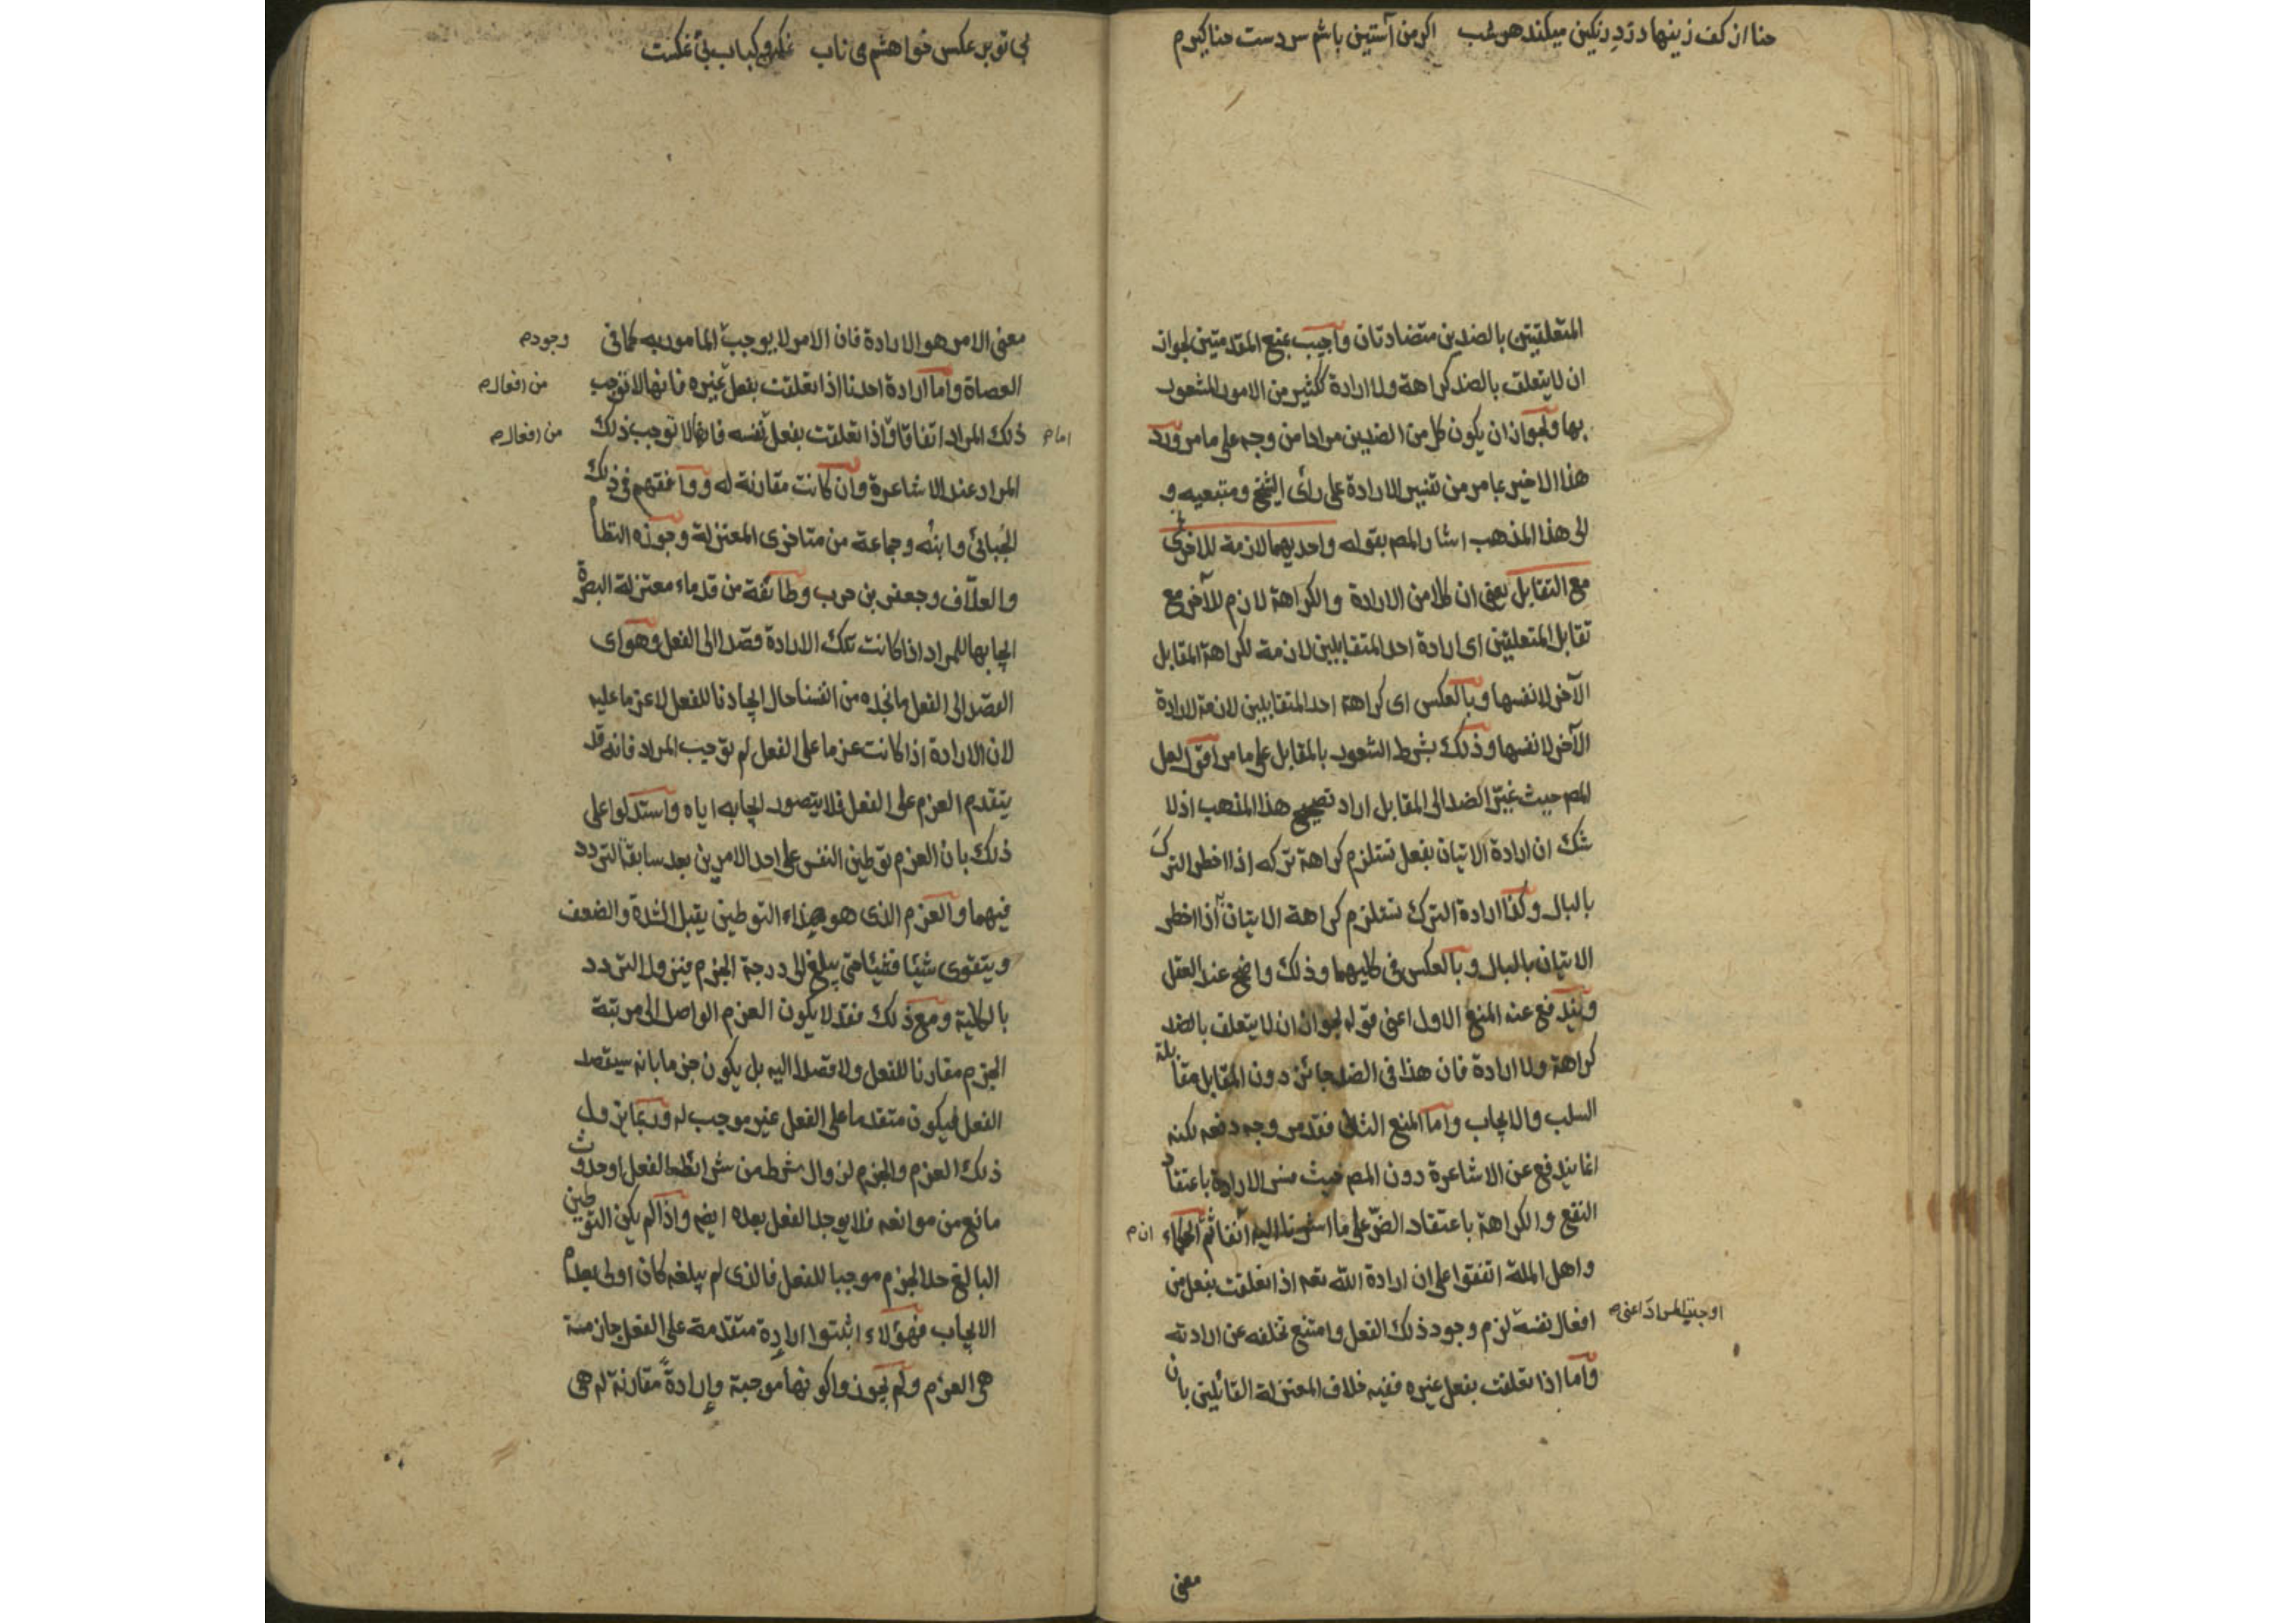 حنا از کف زینهار دزد رنکین میکند هر شب اکر من آستین باشم سر دست حنا کیرم
المتعلقتين بالضدين متضادتان واجيب بمنع المقدمتين لجواز
ان لا يتعلق بالضد كراهة ولا ارادة ككثير من الامور المشعور
بها ولجواز ان يكون كل من الضدين مرادا من وجه على ما مر ورد
هذا الاخير بما مر من تفسير الارادة على رأى الشيخ ومتبعيه و
الى هذا المذهب اشار المصم بقوله واحديهما لازمة للاخرى
مع التقابل يعنى ان كلا من الارادة والكراهة لازم للآخر مع
تقابل المتعلقين اى ارادة احد المتقابلين لازمة لكراهة المقابل
الآخر لا نفسها وبالعكس اى كراهة احد المتقابلين لازمة لارادة
الآخر لا نفسها وذلك بشرط الشعور بالمقابل على ما مر اقول لعل
المصم حيث غيّر الضد الى المقابل اراد تصحيح هذا المذهب اذ لا
شك ان ارادة الاتيان بفعل تستلزم كراهة تركه اذا اخطر الترك
بالبال وكذا ارادة الترك تستلزم كراهة الاتيان به اذا اخطر
الاتيان بالبال وبالعكس فى كليهما وذلك واضح عند العقل
ويندفع عنه المنع الاول اعنى قوله لجواز ان لا يتعلق بالضد
كراهة ولا ارادة فان هذا فى الضد جائز دون المقابل مقابلة
السلب والايجاب واما المنع الثانى فقد مر وجه دفعه لكنه
انما يندفع عن الاشاعرة دون المصم حيث فسر الارادة باعتقاد
النفع والكراهة باعتقاد الضرّ على ما اشرنا اليه آنفا ثم الحكماء
واهل الملة اتفقوا على ان ارادة الله تعم اذا تعلقت بفعل من
افعال نفسه لزم وجود ذلك الفعل وامتنع تخلفه عن ارادته
اوجبت المراد اعنى م
واما اذا تعلقت بفعل غيره ففيه خلاف المعتزلة القائلين بان
معنى
بی تو بر عکس خواهشم می ناب
معنى الامر هو الارادة فان الامر لا يوجب المامور به كما فى
وجود م
العصاة واما ارادة احدنا اذا تعلقت بفعل غيره فانها لا توجب
من افعال م
ذلك المراد اتفاقا واذا تعلقت بفعل نفسه فانها لا توجب ذلك
اما م
من افعال م
المراد عند الاشاعرة وان كانت مقارنة له ووافقهم فى ذلك
الجُبائى وابنُه وجماعة من متاخرى المعتزلة وجوزه النظام
والعلّاف وجعفر بن حرب وطائفة من قدماء معتزلة البصرة
ايجابها للمراد اذا كانت تلك الارادة قصدا الى الفعل وهو اى
القصد الى الفعل ما نجده من انفسنا حال ايجادنا للفعل لا عزما عليه
لان الارادة اذا كانت عزما على الفعل لم توجب المراد فانه قد
يتقدم العزم على الفعل فلا يتصور ايجابه اياه واستدلوا على
ذلك بان العزم توطين النفس على احد الامرين بعد سابقة التردد
فيهما والعزم الذى هو هذا التوطين يقبل الشدة والضعف
ويتقوى شيئا فشيئا حتى يبلغ الى درجة الجزم فيزول التردد
بالكلية ومع ذلك فقد لا يكون العزم الواصل الى مرتبة
الجزم مقارنا للفعل ولا قصدا اليه بل يكون جزما بانه سيقصد
الفعل فيكون متقدما على الفعل غير موجب له وربما يزول
ذلك العزم والجزم لزوال شرط من شرائط الفعل او حدوث
مانع من موانعه فلا يوجد الفعل بعده ايضم واذا لم يكن التوطين
البالغ حد الجزم موجبا للفعل فالذى لم يبلغه كان اولى بعدم
الايجاب فهؤلاء اثبتوا ارادة متقدمة على الفعل جازمة
هى العزم ولم يجوزوا كونها موجبة وارادةً مقارنة له هى